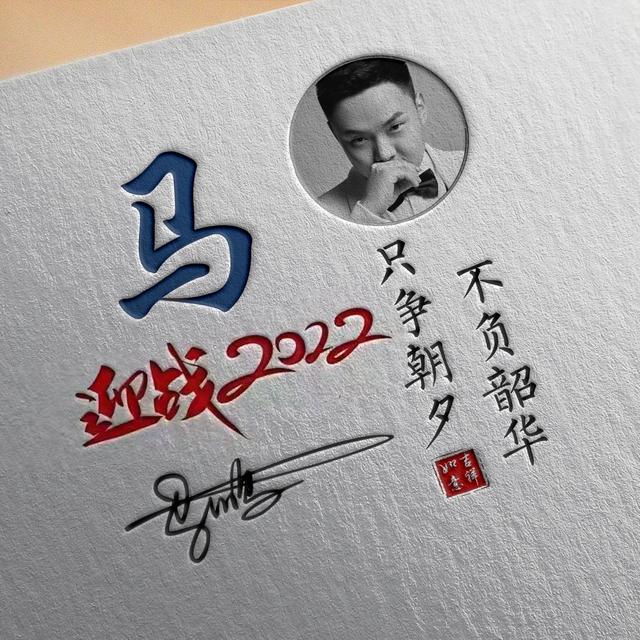 马
迎战2022
只争朝夕
不负韶华
吉祥
如意